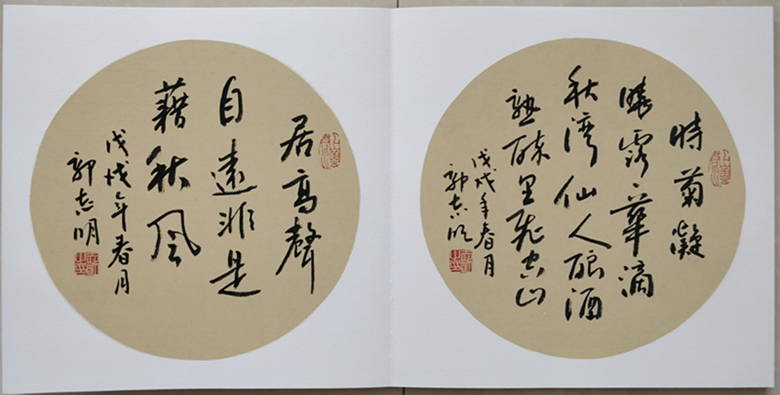 時菊凝
曉露々華滴
秋湾仙人酿酒
熟醉里飛空山
戊戌年春月
郭志明
居高聲
自遠非是
藉秋风
戊戌年春月
郭志明